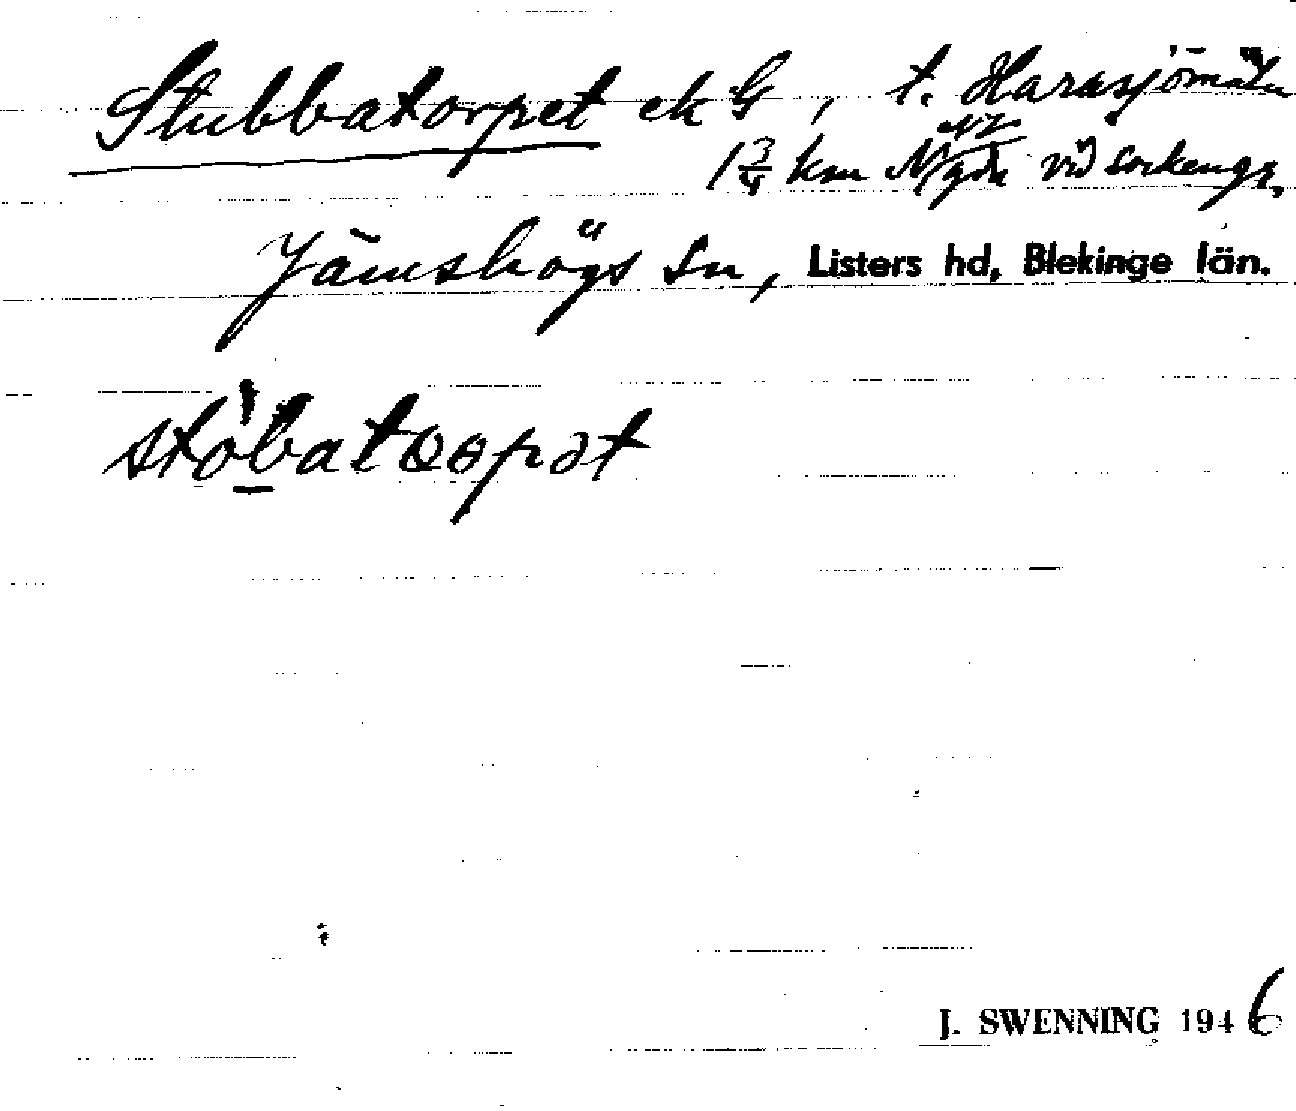 Stubbatorpet ek G, t. Harasjömåla
1 3/4 km N/gdn NV vid sockengr.
Jämshögs sn, Listers hd, Blekinge län.
stobatoopət
J. SWENNING 1946